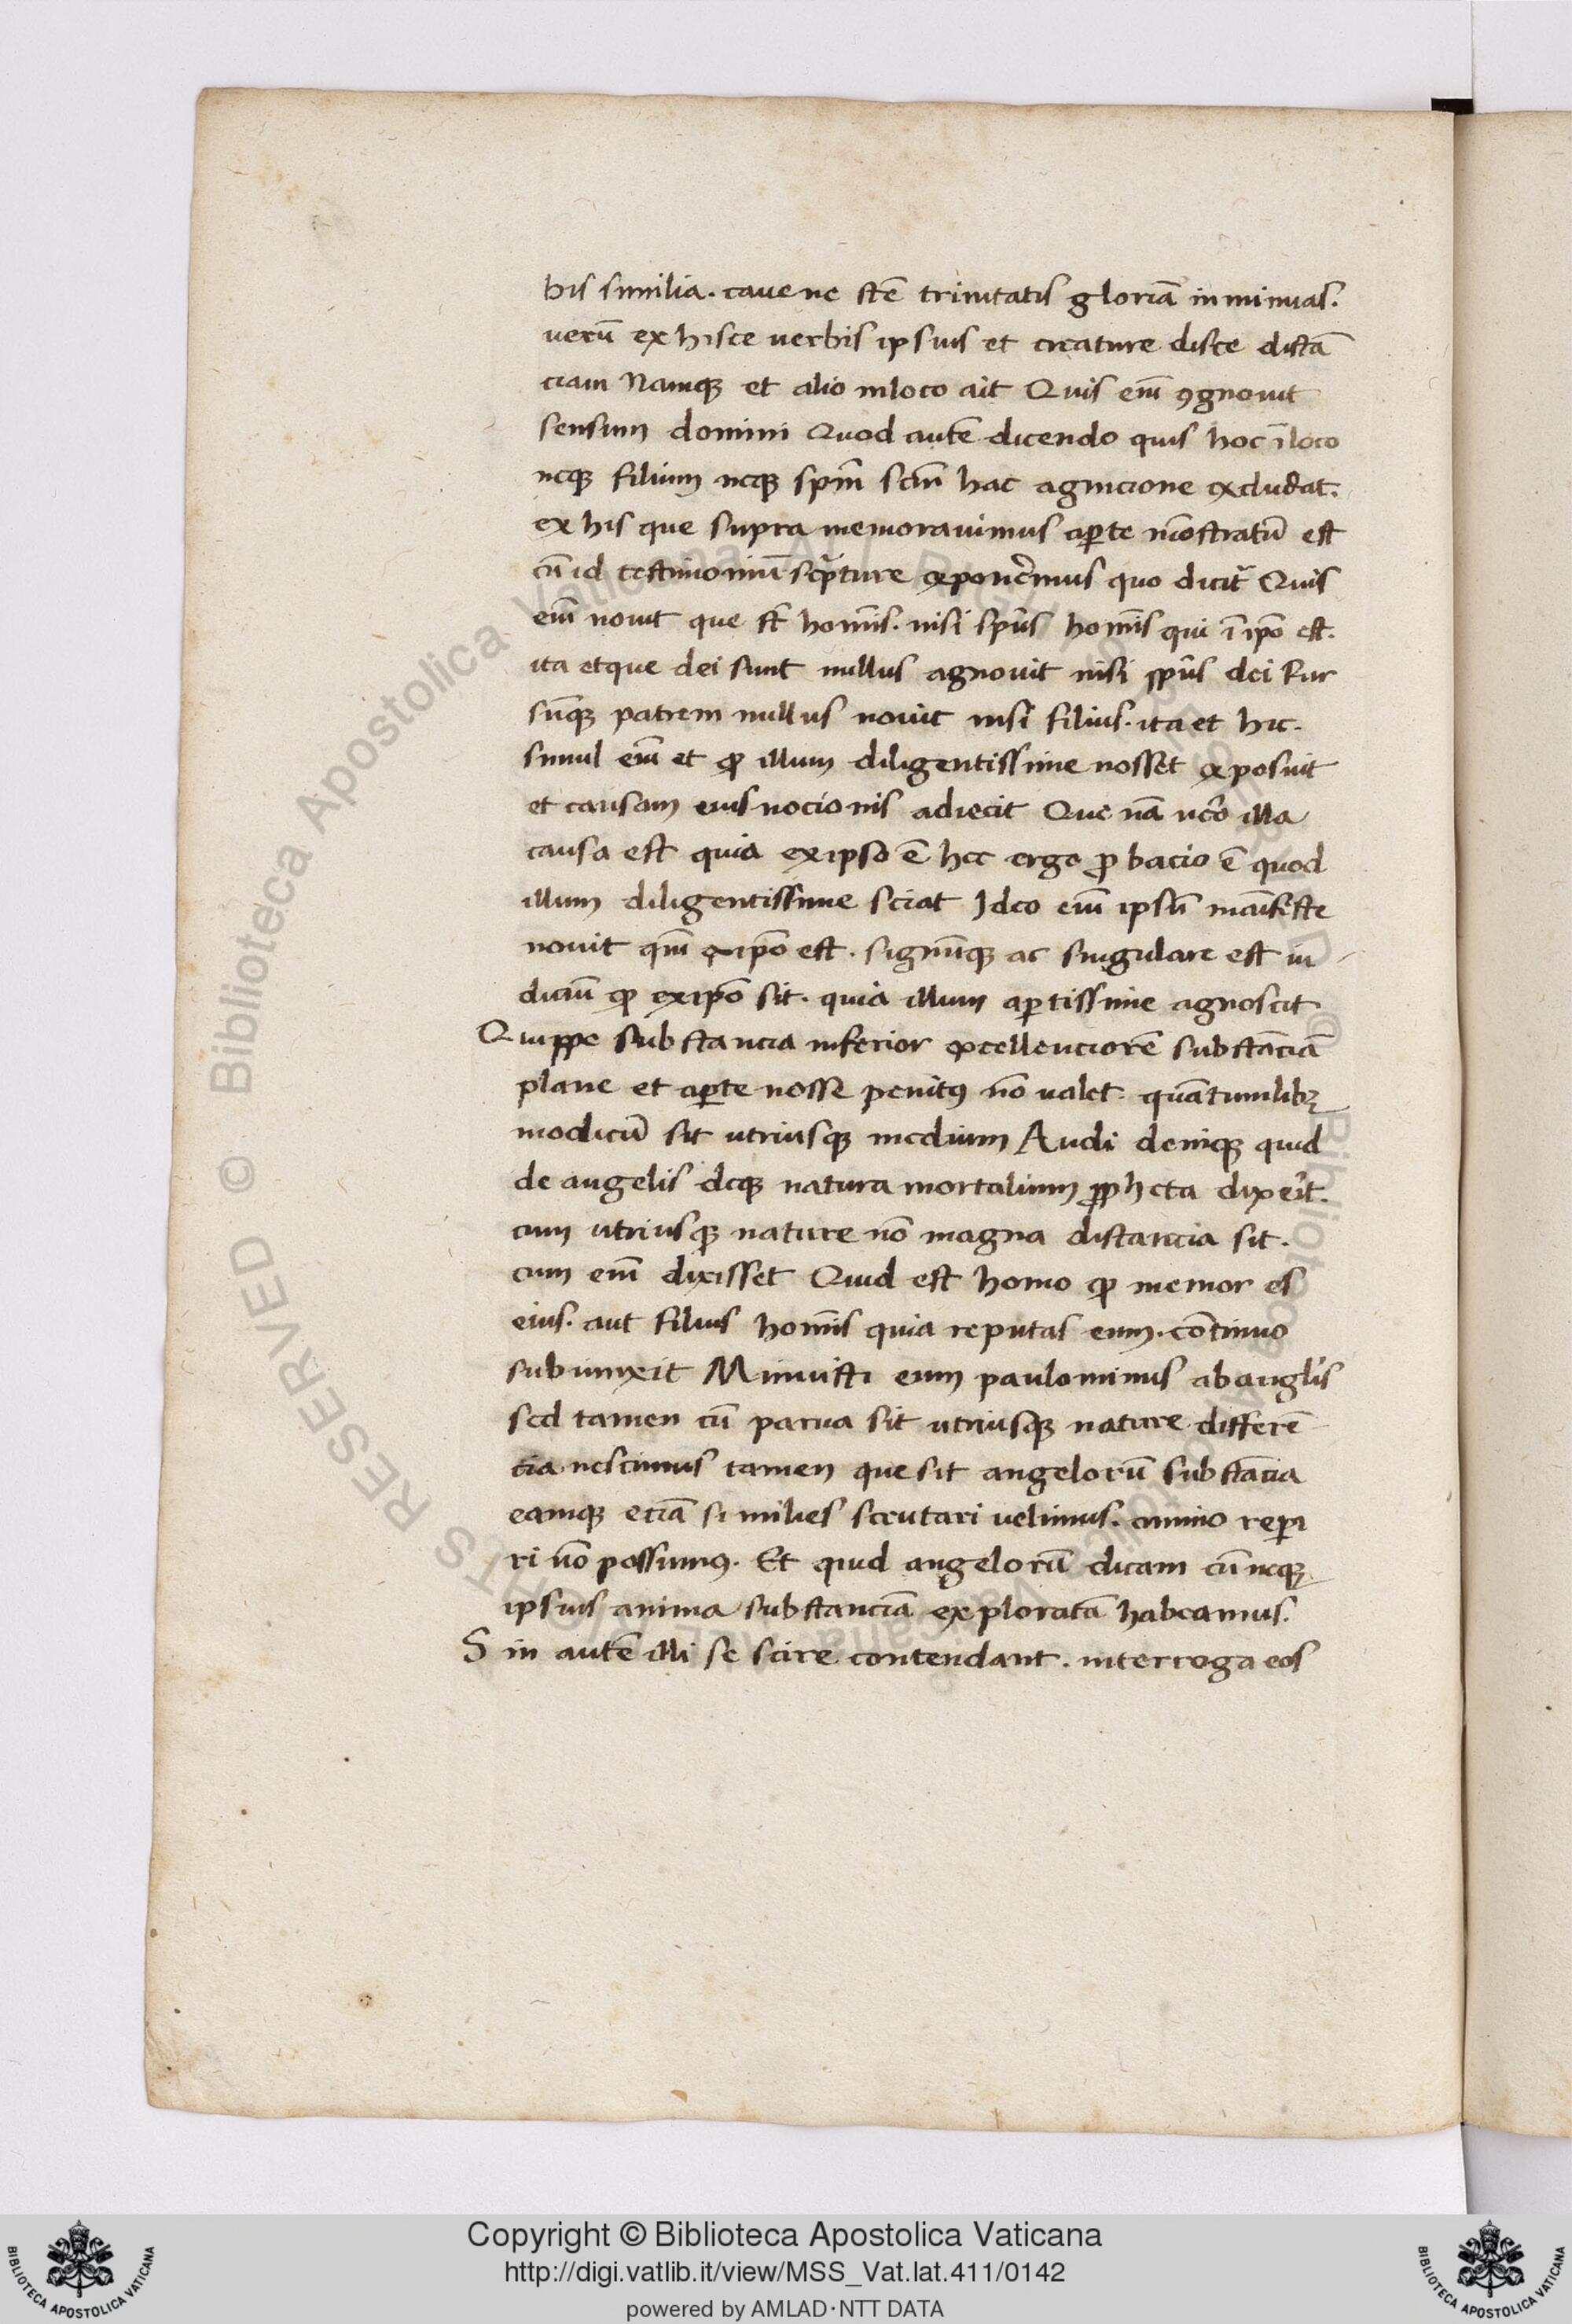 his similia. cave ne sc̄e trinitatis gloriā inminuas.
verū ex hisce verbis ipsius et creature disce distā
ciam Namq; et alio in loco ait Quis eīm ꝯgnovit
sensum domini Quod autē dicendo quis hoc ī loco
neq; filium neq; sp̄m sc̄m hac agnicione excludat.
ex his que supra memoravimus aꝑte mōstratū est
cū id testimoniū scͥpture exponēmus quo dicit̄ Quis
eīm novit que st̄ homīs. nisi sp̄us homīs qui ī ip̄o est.
ita et que dei sunt nullus agnovit nisi sp̄us dei Rur
sūq; patrem nullus novit nisi filius. ita et hic.
simul eīm et ꝙ illum diligentissime nosset exposuit
et causam eius nocionis adiecit Que nā vēo illa
causa est quia ex ipso ē hec ergo ꝓbacio ē quod
illum diligentissime sciat Ideo eīm ipsū manīfeste
novit qm̄ ex ip̄o est. signūq; ac singulare est in
diciū ꝙ ex ip̄o sit. quia illum aꝑtissime agnoscit
Quippe substancia inferior excellenciorē substācīā
plane et aꝑte nosse penitꝰ nō valet. quātumlibꝫ
modicū sit utriusq; medium Audi deniq; quid
de angelis deq; natura mortalium ꝓpheta dixēit.
cum utriusq; nature nō magna distancia sit.
cum eīm dixisset Quid est homo ꝙ memor es
eius. aut filius homīs quia reputas eum. cōtinuo
subiunxit Minuisti eum paulominus ab angl̄is
sed tamen cū parva sit utriusq; nature differē
tia nescimus tamen que sit angelorū substācia
eamq; eciā si milies scrutari velimus. animo reꝑi
ri nō possumꝰ. Et quid angelorū dicam cū neq;
ipsius anima substanciā exploratā habeamus.
Sin autē illi se scire contendant. interroga eos
Copyright © Biblioteca Apostolica Vaticana
http://digi.vatlib.it/view/MSS_Vat.lat.411/0142
powered by AMLAD·NTT DATA